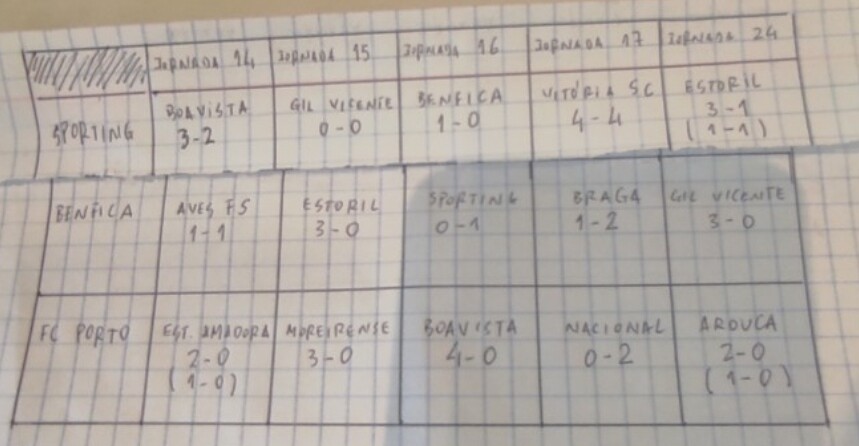 JORNADA 14 JORNADA 15 JORNADA 16 JORNADA 17 JORNADA 24
SPORTING BOAVISTA GIL VICENTE BENFICA VITÓRIA SC ESTORIL
3-2 0-0 1-0 4-4 3-1
(1-1)
BENFICA AVES FS ESTORIL SPORTING BRAGA GIL VICENTE
1-1 3-0 0-1 1-2 3-0
FC PORTO EST. AMADORA MOREIRENSE BOAVISTA NACIONAL AROUCA
2-0 3-0 4-0 0-2 2-0
(1-0) (1-0)